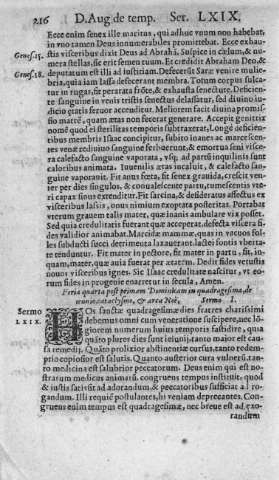 216 D. Aug de temp. Ser. LXIX.
Ecce enim senex ille maritus, qui adhuc vnum non habebat,
in vno tamen Deus innumerabiles promittebat. Ecce exhau-
Genes. 15. stis visceribus dixit Deus ad Abrahã. Suspice in cœlum, & nu-
mera stellas, sic erit semen tuum. Et credidit Abraham Deo, &
Genes. 18. deputatum est illi ad iustitiam. Defecerãt Saræ venire mulie-
bria, quia iam lassa defecerant membra. Totum corpus situ-
tur in rugas, sit per ætatẽ frõte, & exhausta senectute. Deficien-
te sanguine in venis tristis senectus
dicio gratis seruor accenditur. Meliorem facit diuina promis-
sio matrẽ, quam ætas non fecerat generare. Accepit genitrix
nomẽ quod ei sterilitas temporis subtraxerat. Longè deficien-
tibus membris Isaac concipitur, subito inanes ac marcescen-
venæ redeunte sanguine ferbuerunt, & emortua seni visce-
ra calefacto sanguine vaporata, vsq; ad partũ inquilinis sunt
caloribus animata. Iuuenilis ætas incaluit, & calefacto san-
guine vaporauit. Fit anus fœta, fit senex grauida, crescit ven-
ter per dies singulos, & conualescente partu, tumescentis vte-
ri capax sinus extenditur. Fit sarcina, & desideratus affectus ex
visceribus lassis, onus nimium exoptata posteritati. Portabat
vterum grauem talis mater, quæ inanis ambulare vix posset.
Sed quia credulitatis fuerant quæ acceperat, defecta viscera fi-
des validior animabat. Marcidæ mammæ, quasi in vacuos fol-
les subducti succi detrimenta laxauerant, lactei fontis vberta-
te tenduntur. Fit mater in pectore, fit mater in parti, fit, in-
quam, mater, quæ auia fuerat per ætatem. Dedit fides vetustis
nouos visceribus ignes. Sic Isaac credulitate nascitur, vt eo-
rum fides in progenie enarretur in secula, Amen.
Feria quarta post primam Dominicam in quadragesima, de
mundi cataclysmo, & arca Noë, Sermo I.
Sermo LXIX. HOs sanctæ quadragesimæ dies fratres charissimi
debemus omni cum veneratione suscipere, nec lon-
giorem numerum huius temporis fastidire, quia
quanto plures dies sunt ieiunij, tanto maior est cau-
sa remedij. Quãto prolixior abstinentiæ cursus, tanto redem-
ptio copiosior est salutis. Quanto austerior cura vulnerũ, tan-
to medicina est salubrior peccatorum. Deus enim qui est no-
strarum medicus animarũ, congruens tempus instituit, quod
& iustis satis sit ad adorandum, & peccatoribus sufficiat ad ro-
gandum. Illi requiẽ postulantes, hi veniam deprecantes. Con-
gruens enim tempus est quadragesimæ, nec breue est ad exo-
randum